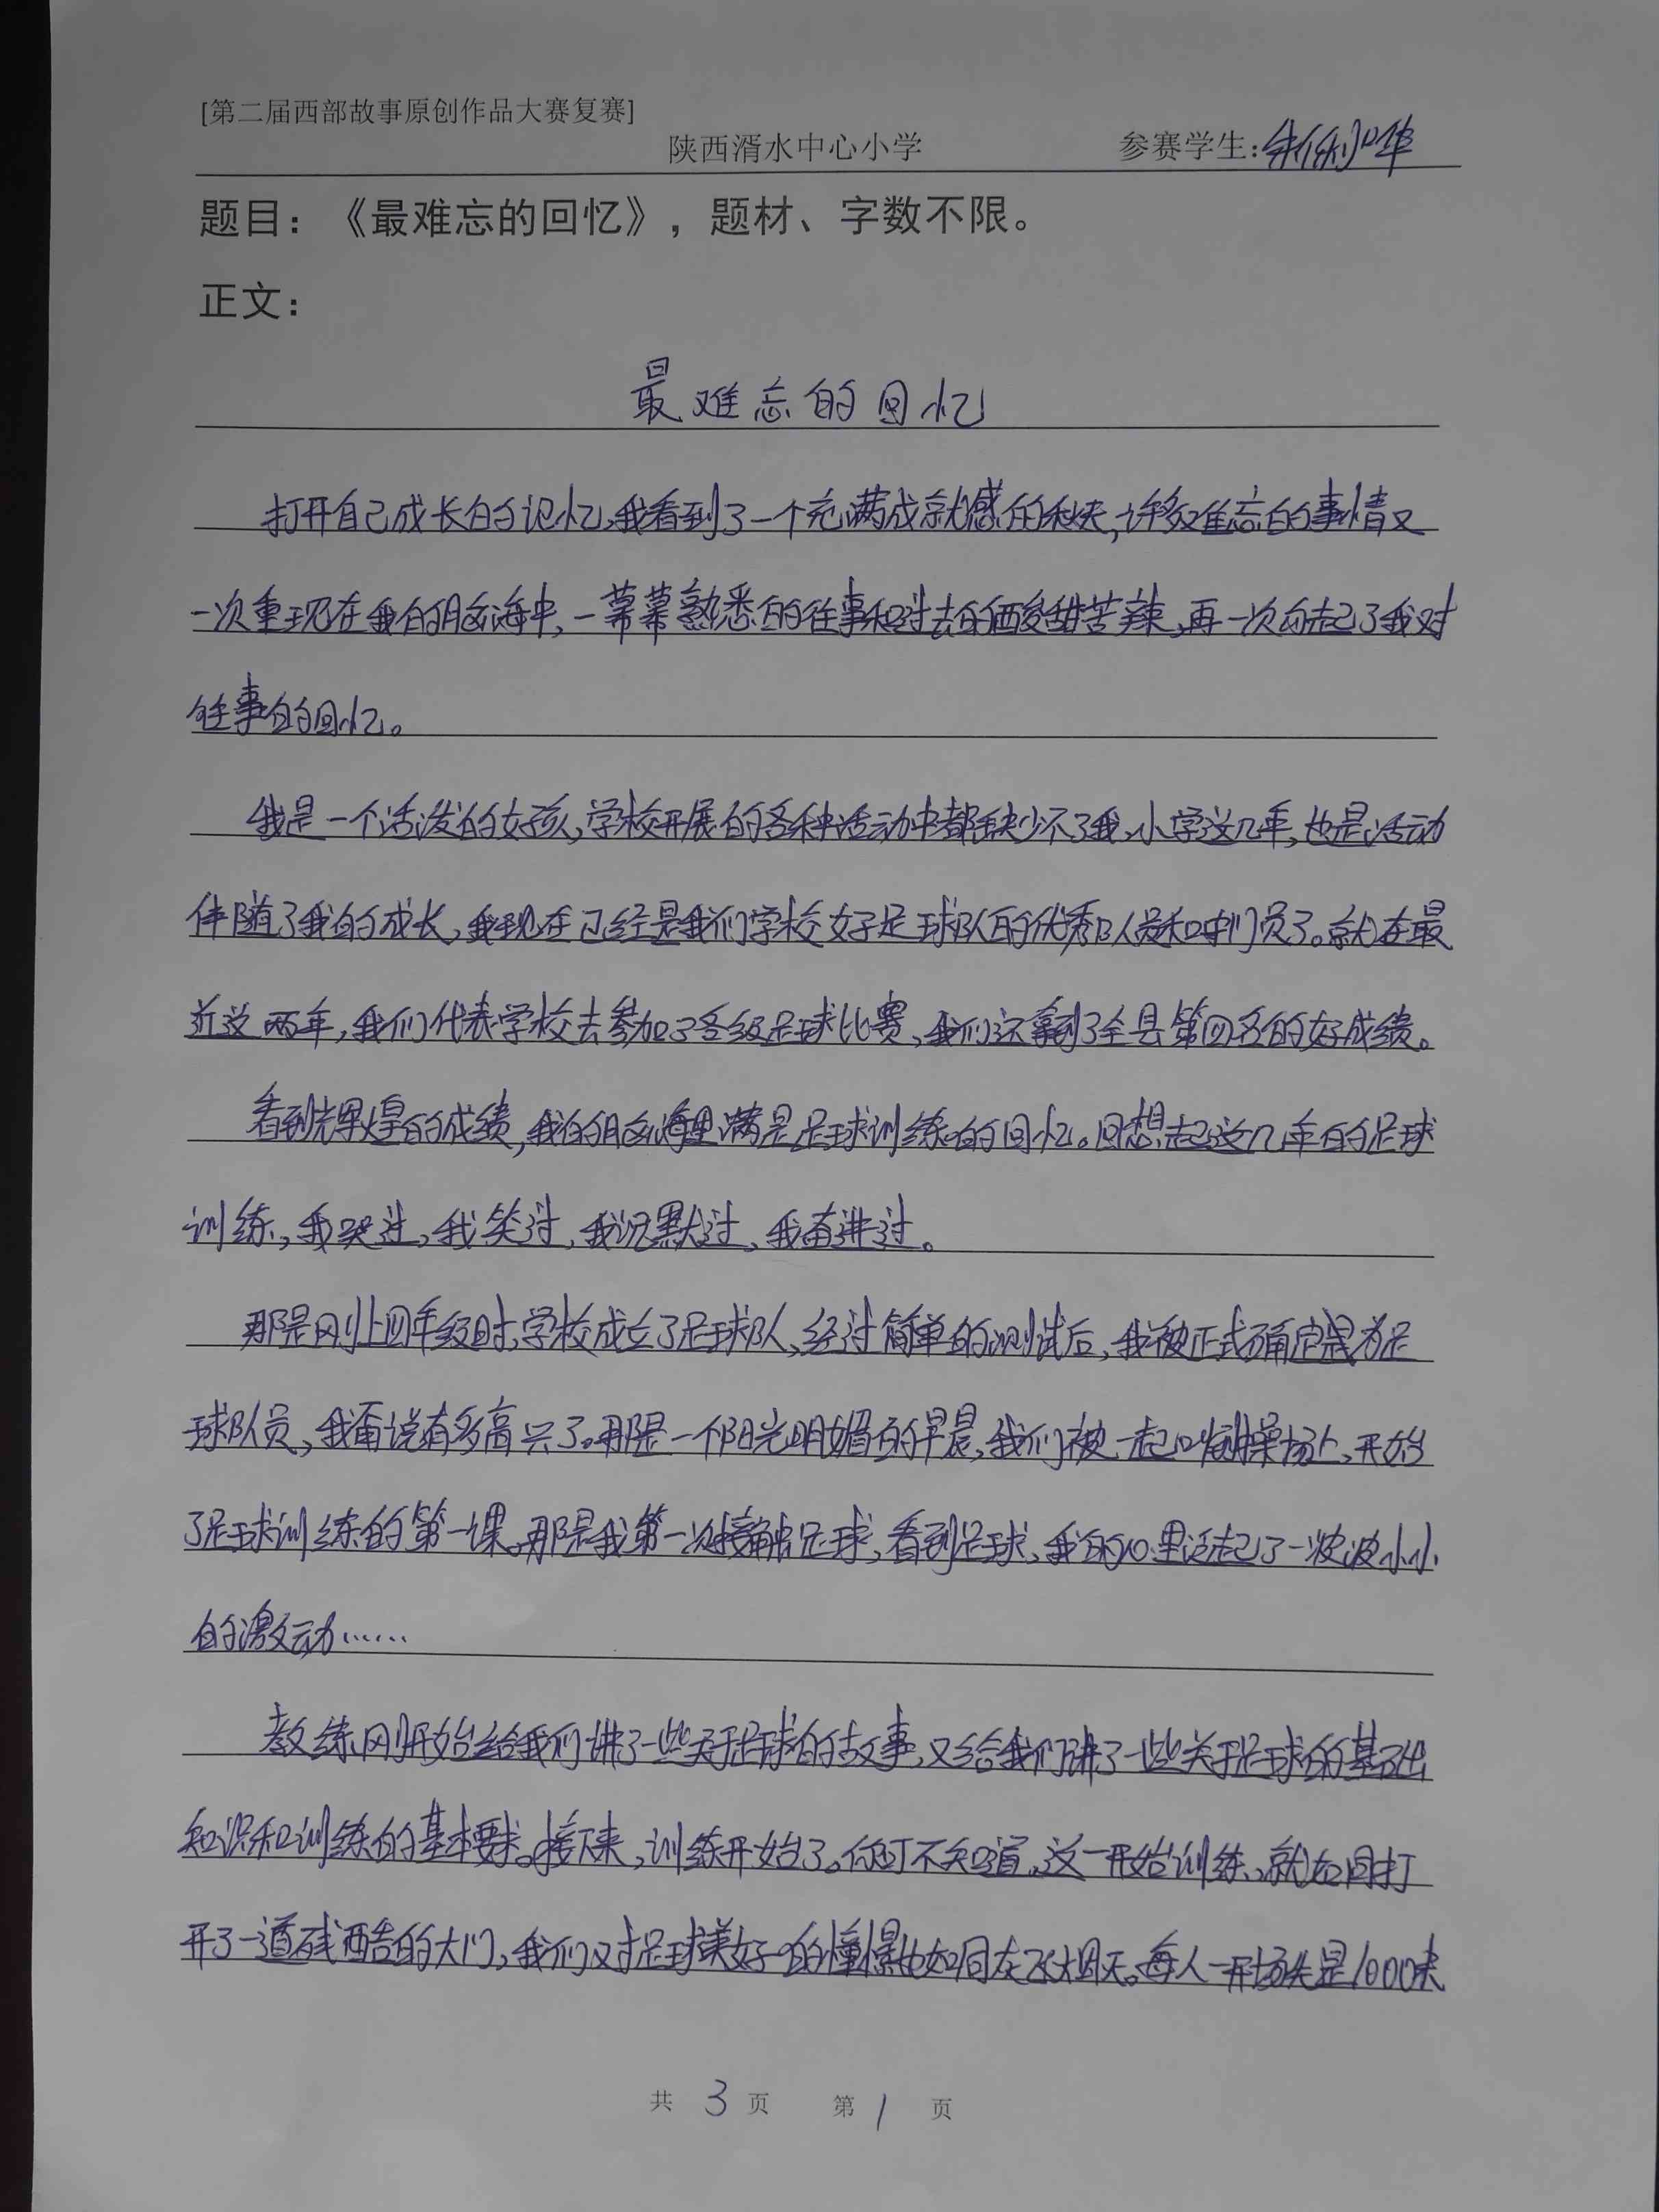 [第二届西部故事原创作品大赛复赛]
陕西湑水中心小学 参赛学生:
题目：《最难忘的回忆》，题材、字数不限。
正文：
最难忘的回忆
打开自己成长的记忆,我看到了一个充满成就感的秋天,许多难忘的事情又
一次重现在我的脑海中,一幕幕熟悉的往事和过去的酸甜苦辣,再一次勾起了我对
往事的回忆。
我是一个活泼的女孩,学校开展的各种活动中都缺少不了我,小学这几年,也是活动
伴随了我的成长,我现在已经是我们学校女子足球队的优秀队员和守门员了。就在最
近这两年,我们代表学校去参加了各级足球比赛,我们还拿到了全县第四名的好成绩。
看到辉煌的成绩,我的脑海里满是足球训练的回忆。回想起这几年的足球
训练,我哭过,我笑过,我沉默过,我奋进过。
那是刚上四年级时,学校成立了足球队,经过简单的测试后,我被正式确定为足
球队员,我甭说有多高兴了。那是一个阳光明媚的早晨,我们被一起叫到操场上,开始
了足球训练的第一课。那是我第一次接触足球,看到足球,我的心里泛起了一波波小小
的激动……
教练刚开始给我们讲了一些关于足球的故事,又给我们讲了一些关于足球的基础
知识和训练的基本要求。接下来,训练开始了。你可不知道,这一开始训练,就如同打
开了一道残酷的大门,我们对足球美好的憧憬也如同灰飞烟灭。每人一开场先是1000米
共 3 页 第 1 页